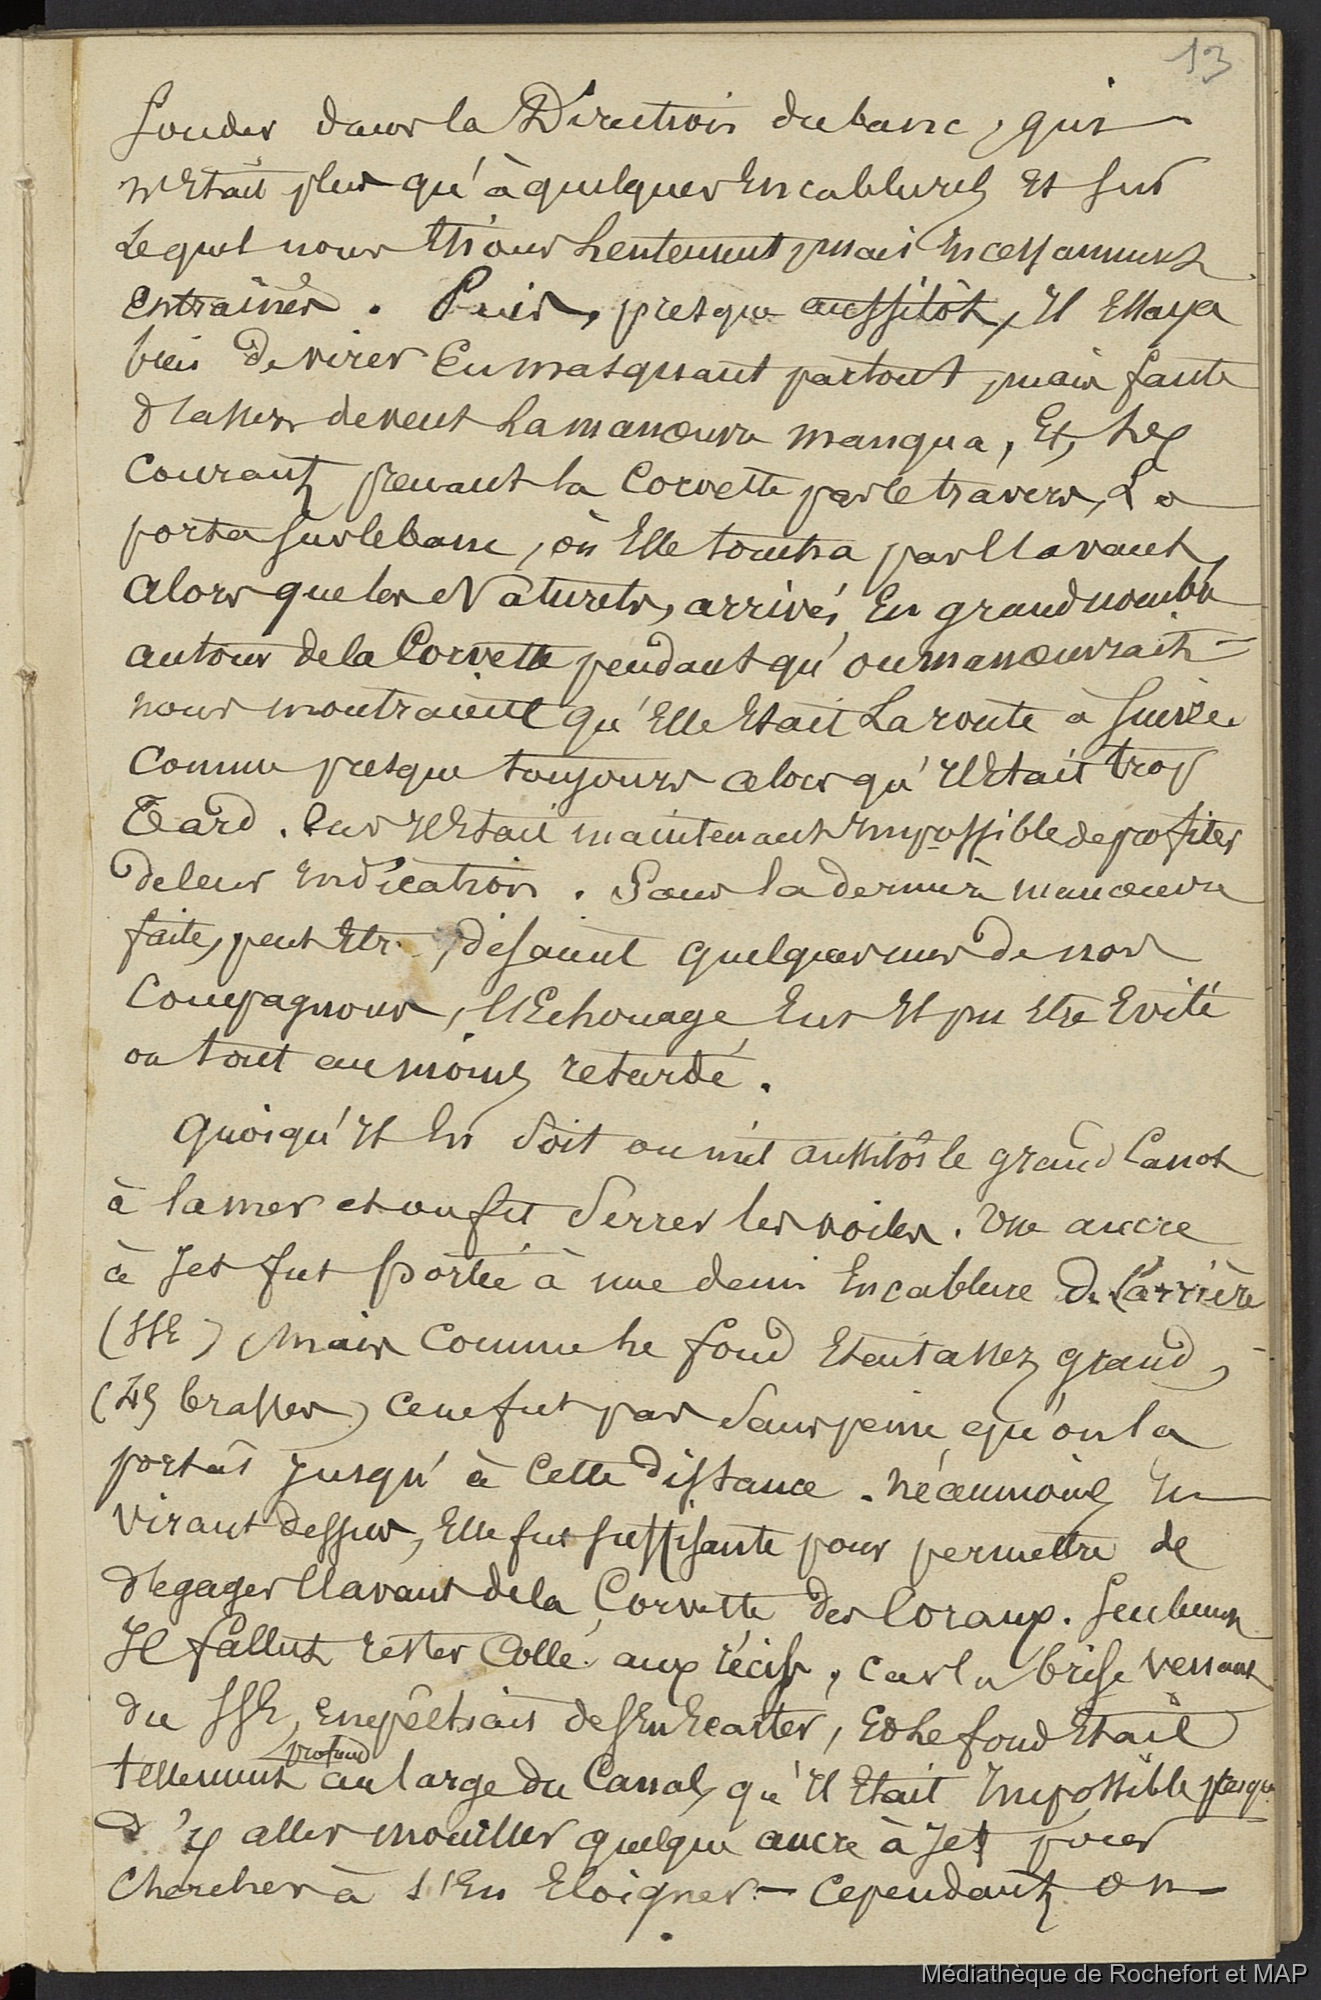 13
sonder dans la Direction du banc, qui
n'Etait plus qu'à quelques Encablures Et sur
Lequel nous Etions Lentement, mais Incessamment
Entrainés. Puis, presque aussitôt, Il Essaya
bien De virer En masquant partout, mais faute
d'assez de vent La manoeuvre manqua, Et, Les
Courants prenant la Corvette par le travers, La
porta sur le banc, où Elle toucha par l'avant,
alors que les Naturels, arrivés En grand nombre
autour de la Corvette pendant qu'on manoeuvrait
nous montraient qu'Elle Etait La route à suivre
Comme presque toujours alors qu'Il Etait trop
Tard. Car Il Etait maintenant Impossible de profiter
De leur Indication. Sans la dernière manoeuvre
faite, peut Etre, disaient quelques uns De nos
Compagnons, l'Echouage Eut Il pu Etre Evité
ou tout au moins retardé.
Quoiqu'Il En Soit on mit aussitôt le grand Canot
à la mer et on fit Serrer les voiles. Une ancre
à Jet fut portée à une demi Encablure De L'arrière
(SSE) Mais Comme Le fond Etait assez grand,
(45 brasses) ce ne fut pas Sans peine qu'on la
portât Jusqu'à Cette Distance. Néanmoins En
Virant Dessus, Elle fut suffisante pour permettre de
dégager l'avant de la Corvette des Coraux. Seulement
Il fallut rester Collé aux récifs, car la brise venant
du SSE, Empêchait de s'En Ecarter, Et Le fond Etait
profond
tellement au large du Canal, qu'Il Etait Impossible presque
D'y aller mouiller quelque ancre à Jet pour
Chercher à s'En Eloigner. — Cependant on
Médiathèque de Rochefort et MAP